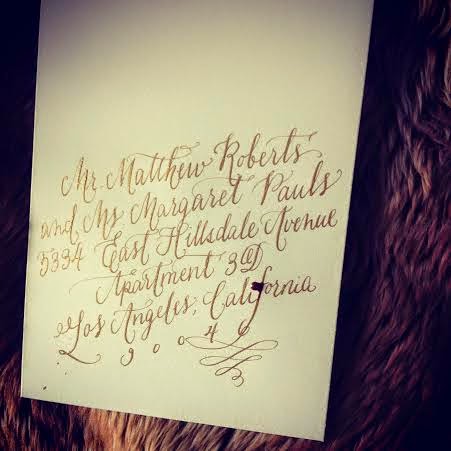 Mr. Matthew Roberts
and Ms Margaret Pauls
5334 East Hillsdale Avenue
Apartment 3D
Los Angeles, California
90046